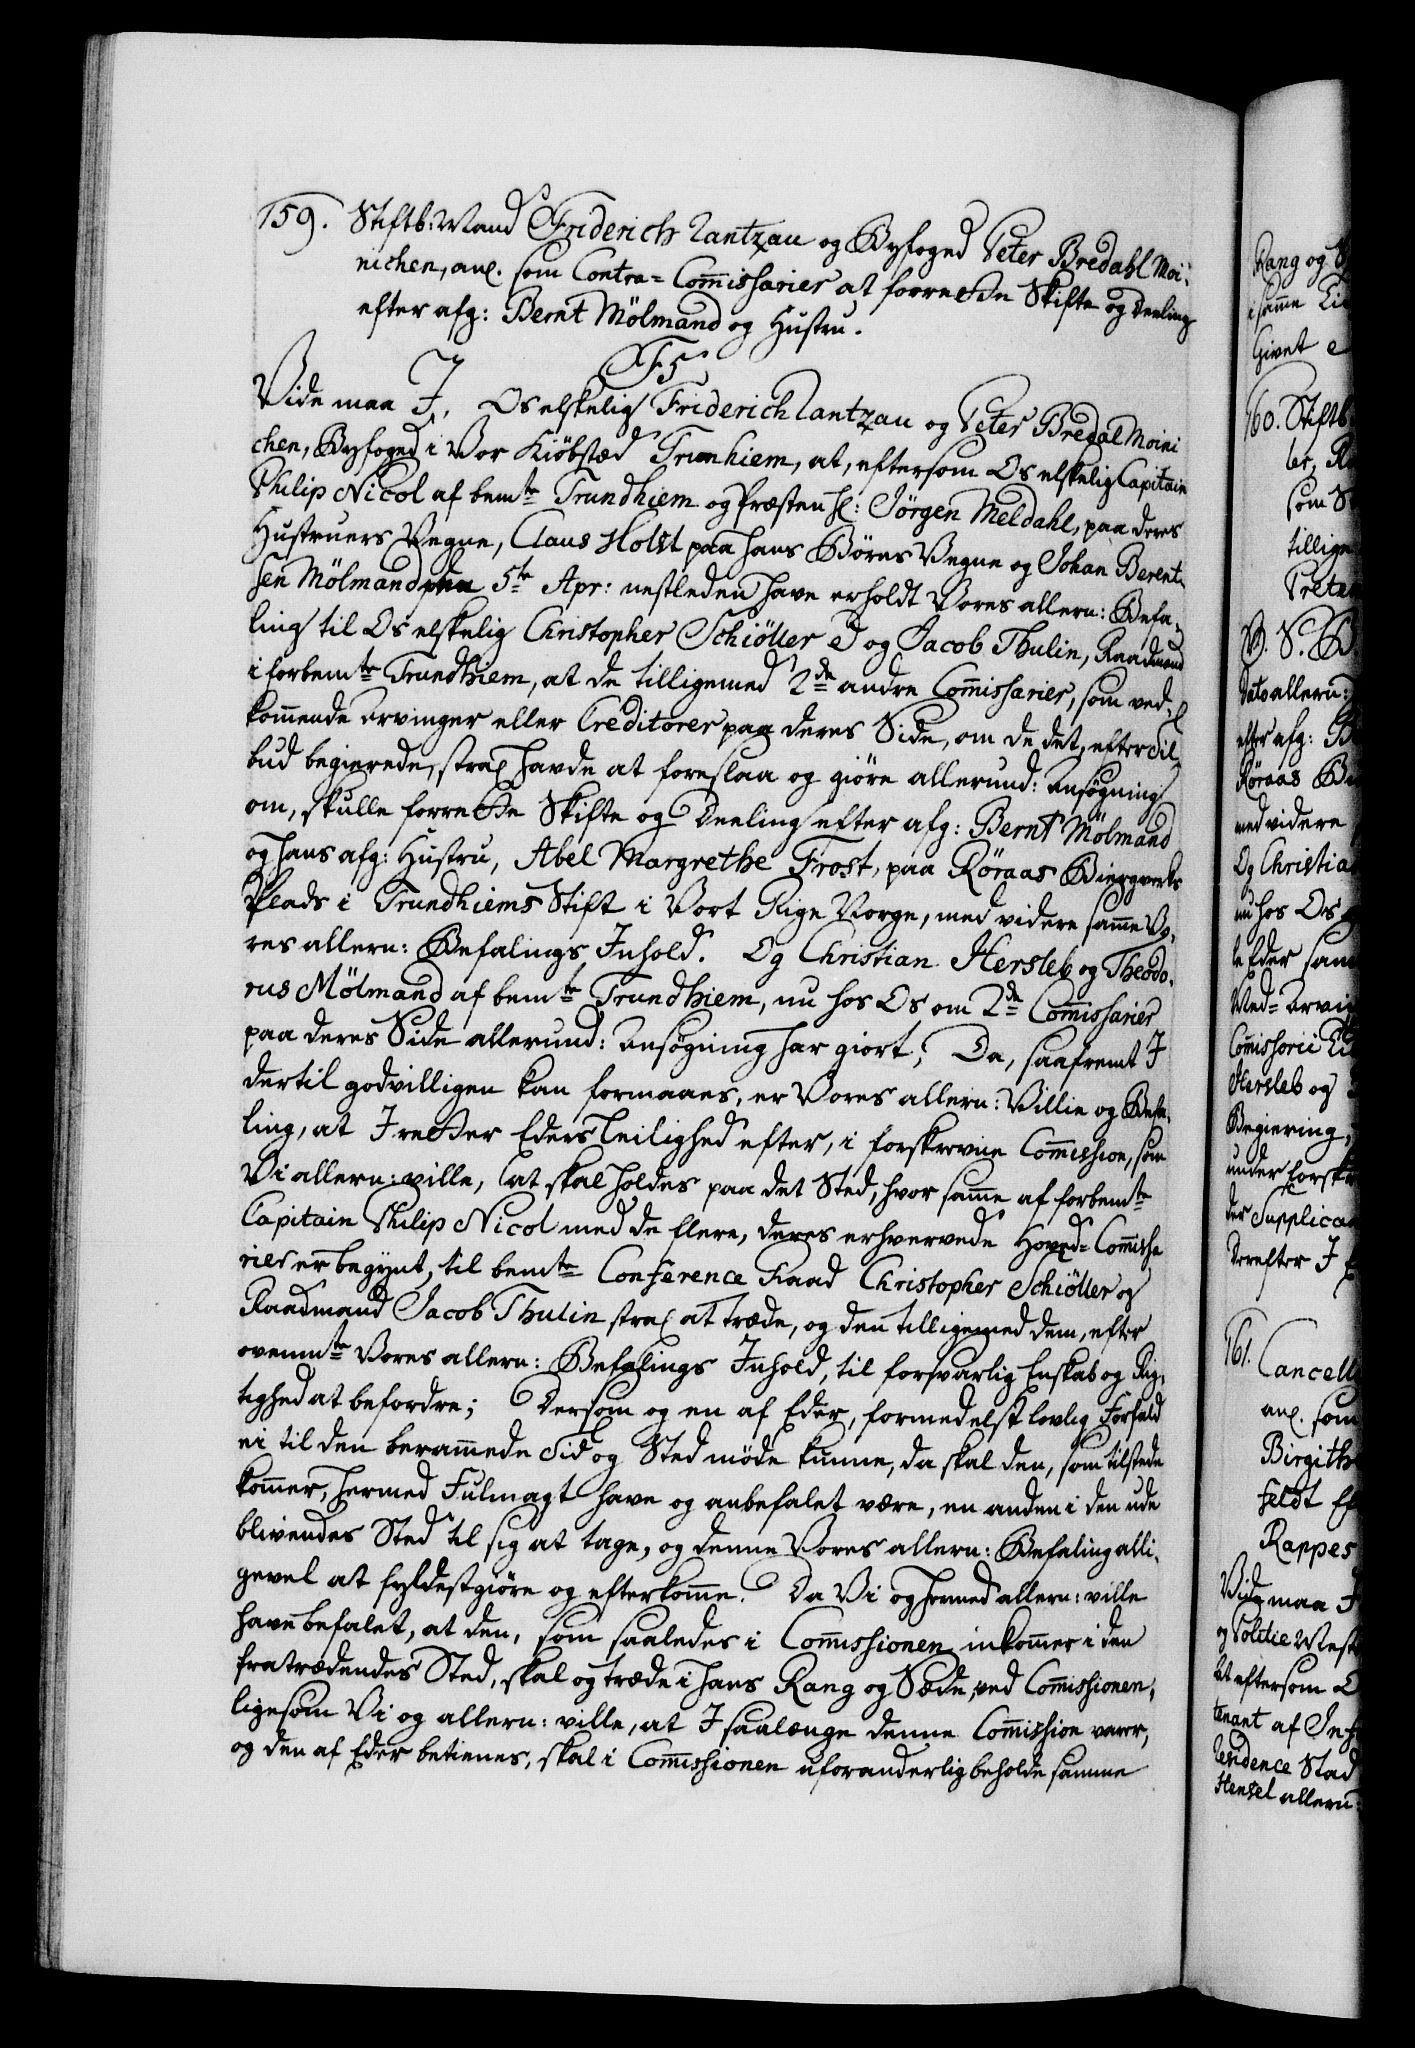 159. Stiftb: Mand Friderich Rantzau og Byfoged Peter Bredahl Moi-
nichen, anl. som Contra-Commissarier at forrette Skifte og Deeling
efter afg: Bernt Mölmand og Hustru.
F5
Vide maa I, Os elskelig Friderich Rantzau og Peter Bredal Moini
chen, Byfoged i Vor Kiöbsted Trunhiem, at, eftersom Os elskelig Capitain
Philip Nicol af bemte Trundhiem og Præsten hl: Jörgen Meldahl, paa deres
Hustruers Vegne, Claus Holst paa hans Börns Vegne og Johan Berent-
sen Mölmand 5te Apr: nestleden have erholdt Vores allern: Befa-
ling til Os elskelig Christopher Schiöller og Jacob Thulin, Raadmand
i forbemte Trundhiem, at de tilligemed 2de andre Commissarier, som ved-
kommende Arvinger eller Creditorer paa deres Side, om de det, efter Til-
bud begierede, strax havde at foreslaa og giöre allerund: Ansögning
om, skulle forrette Skifte og Deeling efter afg: Bernt Mölmand
og hans afg: Hustru, Abel Margrethe Frost, paa Röraas Biergverks
Plads i Trundhiems Stift i Vort Rige Norge, med videre samme Vo-
res allern: Befalings Inhold. Og Christian Hersleb og Theodo-
rus Mölmand af bemte Trundhiem, nu hos Os om 2de Commissarier
paa deres Side allerund: Ansögning har giort; Da, saafremt I
dertil godvilligen kan formaaes, er Vores allern: Villie og Befa-
ling, at I retter Eders Leilighed efter, i forskrevne Commission, som
Vi allern: ville, at skal holdes paa det Sted, hvor samme af forbemte
Capitain Philip Nicol med de flere, deres erhvervede Hoved-Commissa
rier er begynt, til bemte Conference Raad Christopher Schiöller og
Raadmand Jacob Thulin strax at træde, og den tilligemed dem, efter
ovenmte Vores allern: Befalings Inhold, til forsvarlig Enskab og Rig-
tighed at befordre; Dersom og en af Eder, formedelst lovlig Forfald
ei til den berammede Tid og Sted möde kunne, da skal den, som tilstede
kommer, hermed Fulmagt have og anbefalet være, en anden i den ude
blivendes Sted til sig at tage, og denne Vores allern: Befaling alli-
gevel at fyldestgiöre og efterkomme. Da Vi og hermed allern: ville
have befalet, at den, som saaledes i Commissionen inkommer i den
fratrædendes Sted, skal og træde i hans Rang og Sæde, ved Commissionen,
ligesom Vi og allern: ville, at I saalænge denne Commission varer,
og den af Eder betienes, skal i Commissionen uforanderlig beholde samme
Rang og
i samme
Givet
160. Stiftb
som
tillige
V. S. B.
Dato allern:
efter afg: B
Röraas B
med videre
Og Christia
nu hos Os
te Eder sam
Med-Arvi
Commissorii
Hersleb og
Begiering,
under forsk
der Supplica
Derefter I
161. Cancell
anl. som
Birgith
feldt
Rappes
Vide maa I
og Politie Mest
at eftersom O
tenant af Inf
Residence Stad
Hensel allern: